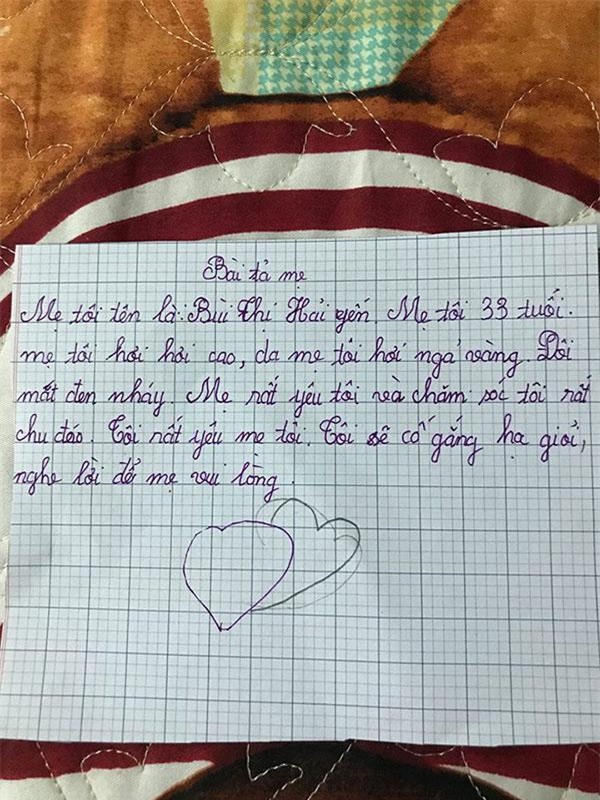 Bài tả mẹ
Mẹ tôi tên là: Bùi Thị Hải yến. Mẹ tôi 33 tuổi.
mẹ tôi hơi hơi cao, da mẹ tôi hơi ngả vàng. Đôi
mắt đen nháy. Mẹ rất yêu tôi và chăm sóc tôi rất
chu đáo. Tôi rất yêu mẹ tôi. Tôi sẽ cố gắng hạ giỏi,
nghe lời để mẹ vui lòng.